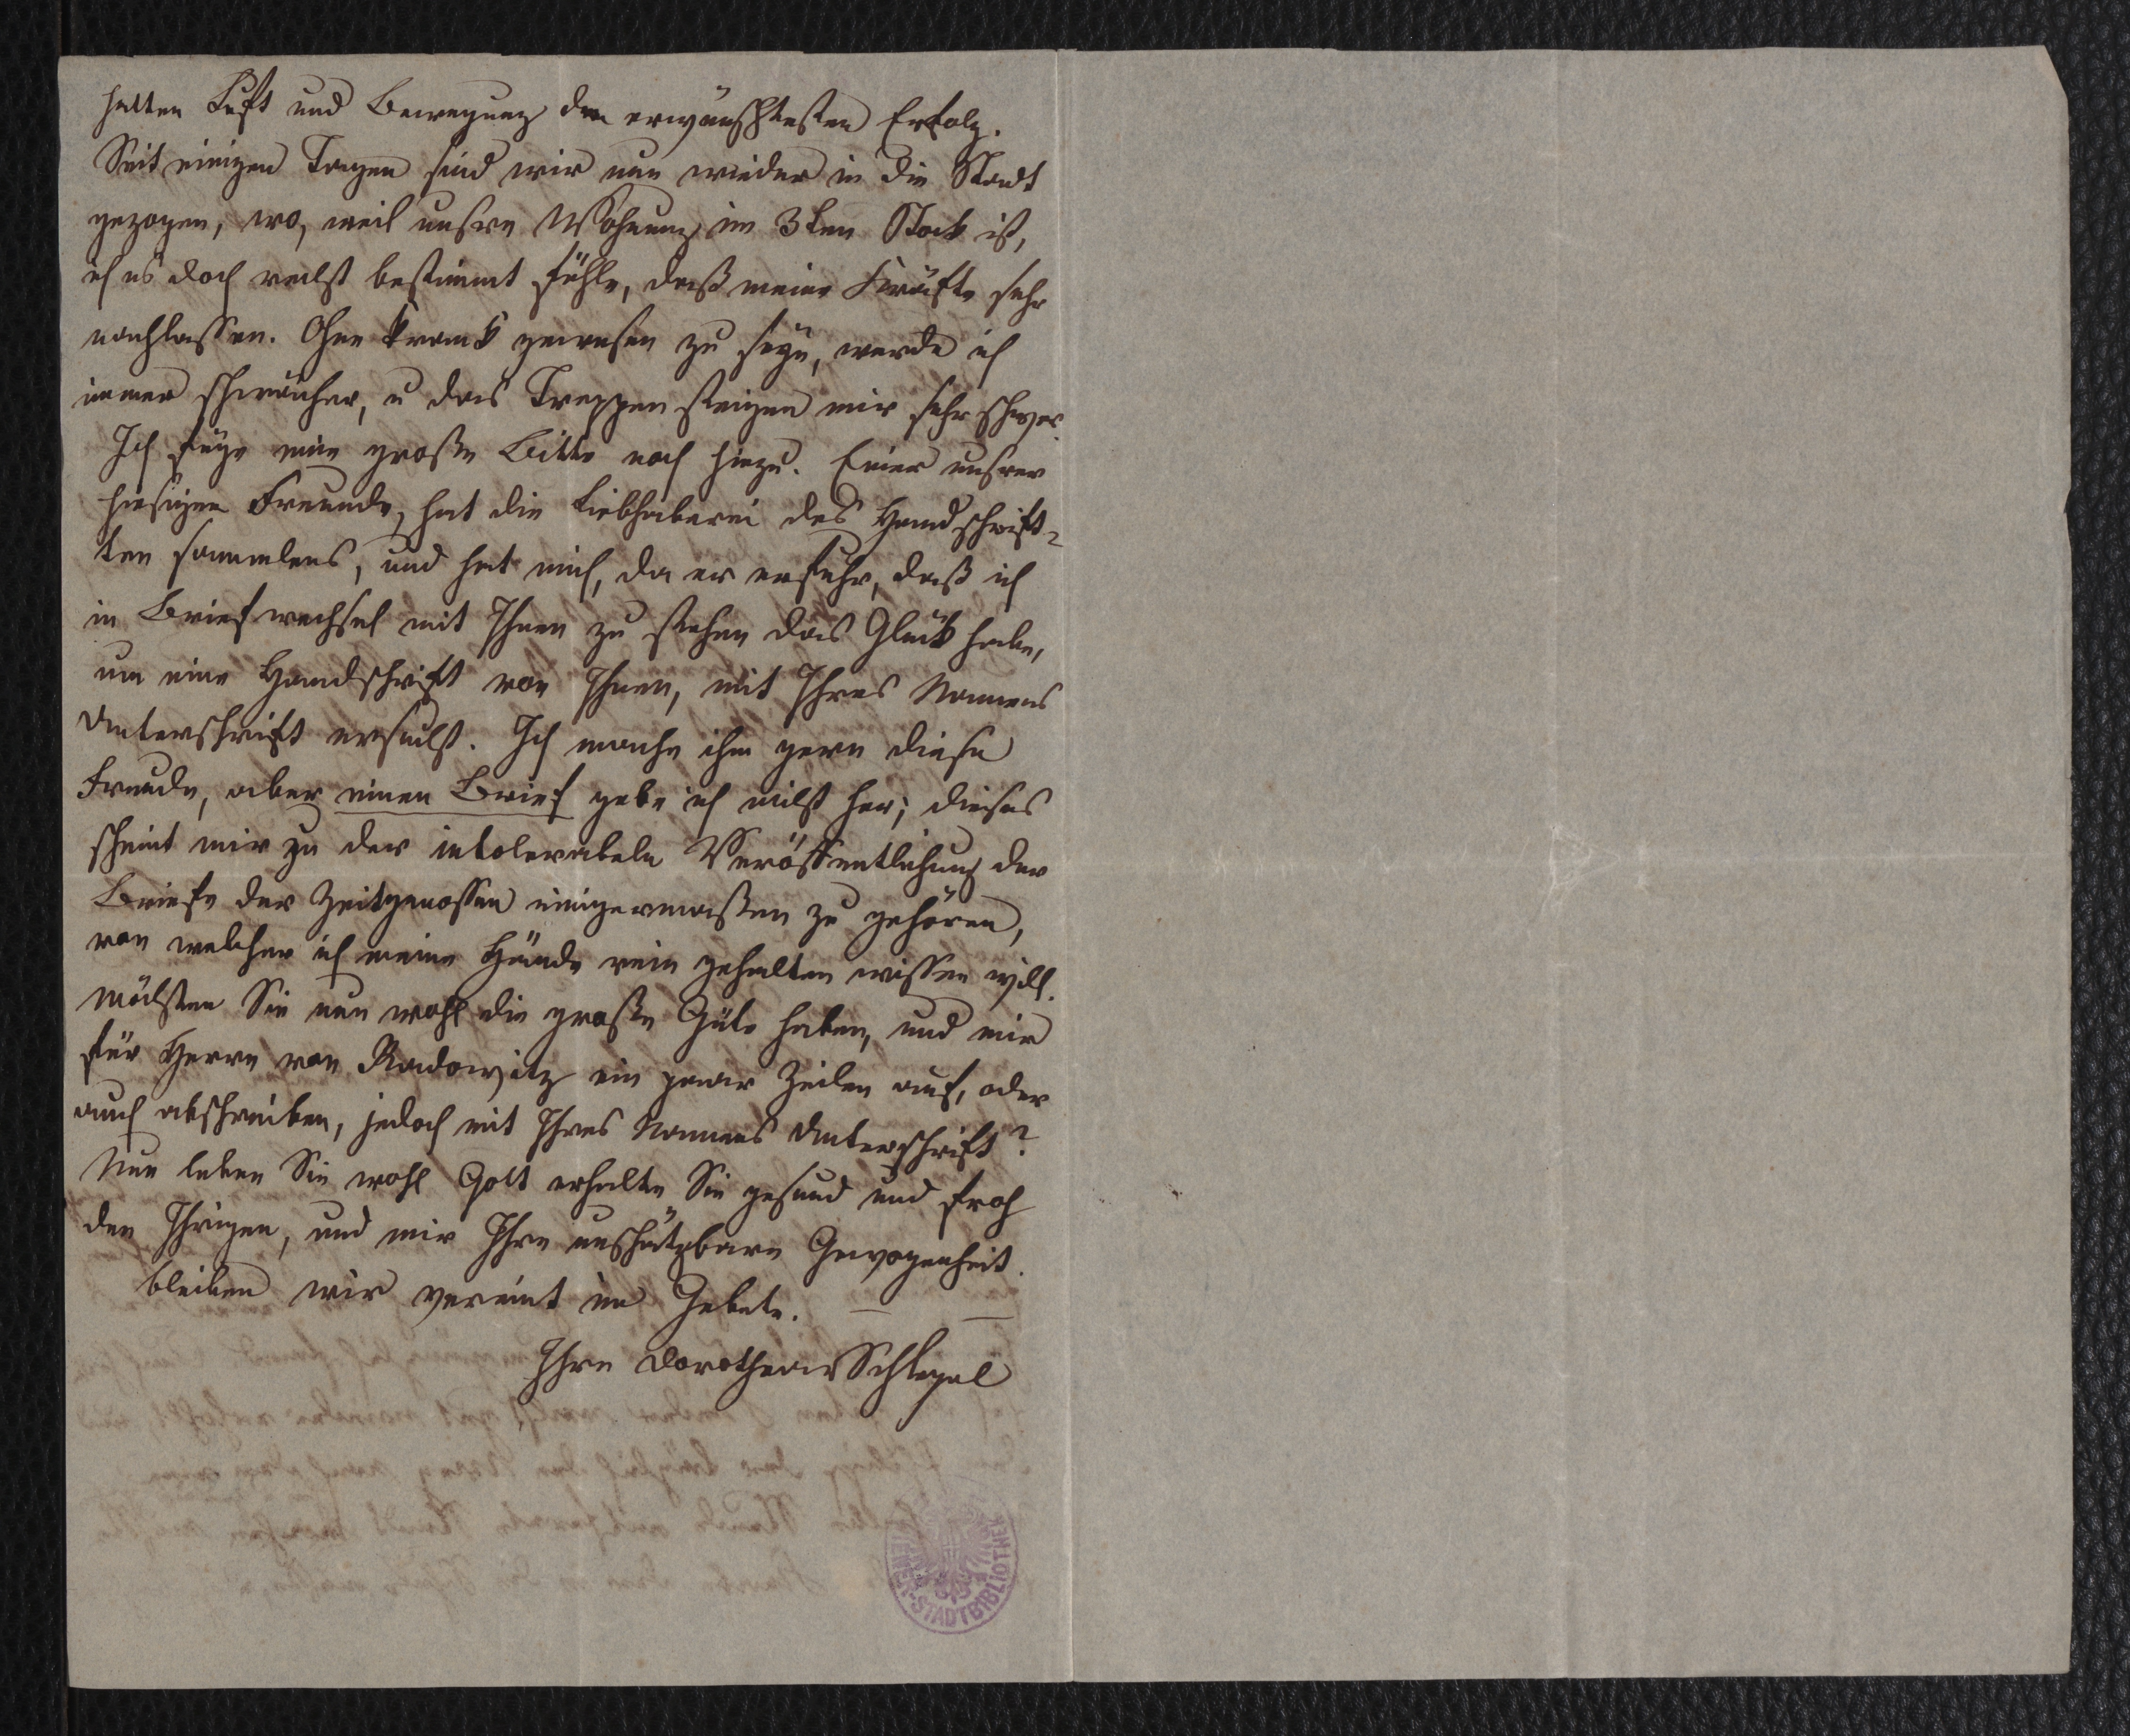 hatten Luft und Bewegung den erwünschtesten Erfolg.
Seit einigen Tagen sind wir nun wieder in die Stadt
gezogen, wo, weil unsre Wohnung im 3ten Stock ist,
ich es doch recht bestimmt fühle, daß meine Kräfte sehr
nachlassen. Ohne krank gewesen zu seyn, werde ich
immer schwächer, u das Treppen steigen mir sehr schwer.
Ich füge eine große Bitte noch hinzu. Einer unsrer
hiesigen Freunde, hat die Liebhaberei des Handschrift-
ten sammlens, und hat mich, da er erfuhr, daß ich
in Briefwechsel mit Ihnen zu stehen das Glück habe,
um eine Handschrift von Ihnen, mit Ihres Namens
Unterschrift ersucht. Ich mache ihm gern diese
Freude, aber einen Brief gebe ich nicht her; dieses
scheint mir zu der intolerabeln Veröffentlichung der
Briefe der Zeitgenossen einigermaßen zu gehören,
von welcher ich meine Hände rein gehalten wissen will.
Möchten Sie nun wohl die große Güte haben, und mir
für Herrn von Radowitz ein paar Zeilen auf, oder
auch abschreiben, jedoch mit Ihres Namens Unterschrift?
Nun leben Sie wohl Gott erhalte Sie gesund und froh
den Ihrigen, und mir Ihre unschätzbare Gewogenheit.
bleiben wir vereint im Gebete. — —
Ihre Dorothea v Schlegel
STADTBIBLIOTHEK